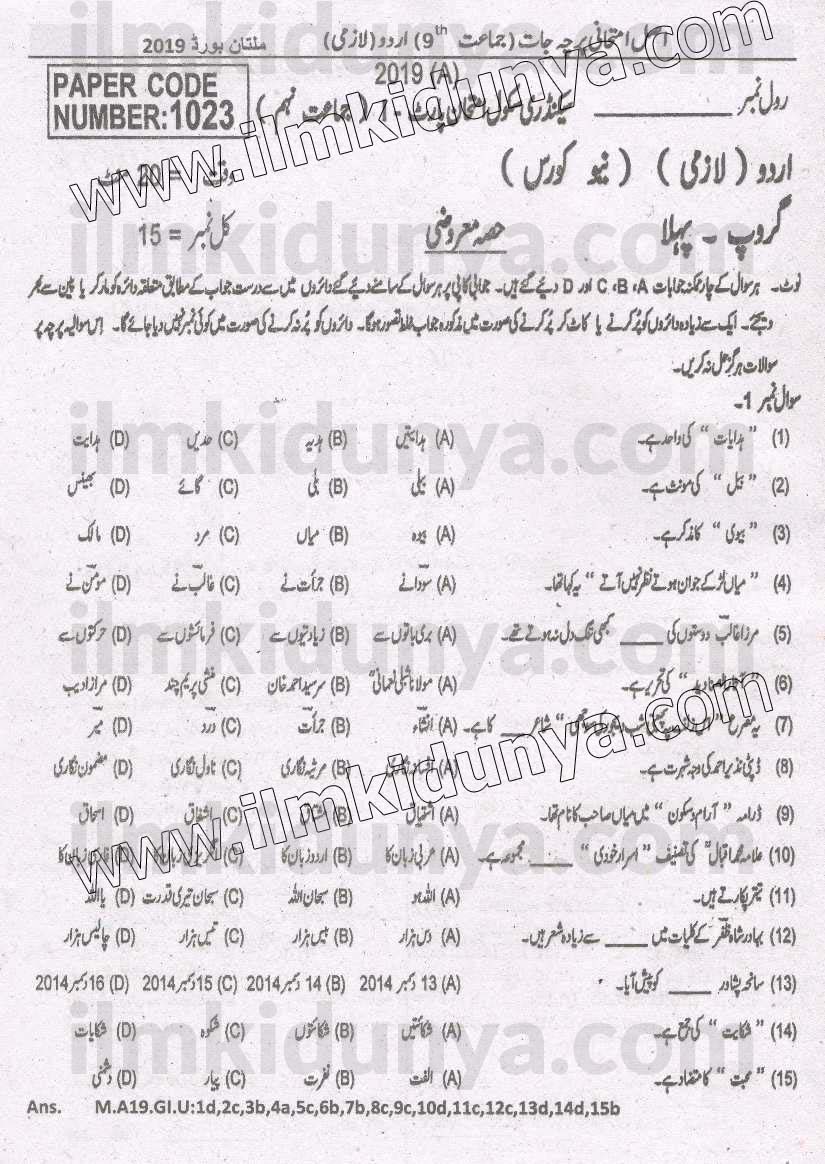 اصل امتحانی پرچہ جات (جماعت 9th) اردو (لازمی) ملتان بورڈ 2019
PAPER CODE
NUMBER:1023
2019 (A)
رول نمبر ________ سیکنڈری سکول امتحان پارٹ - I ( جماعت نہم )
اردو ( لازمی ) ( نیو کورس ) وقت = 20 منٹ
گروپ ۔ پہلا حصہ معروضی کل نمبر = 15
نوٹ۔ ہر سوال کے چار ممکنہ جوابات A، B، C اور D دیئے گئے ہیں۔ جوابی کاپی پر ہر سوال کے سامنے دیئے گئے دائروں میں سے درست جواب کے مطابق متعلقہ دائرہ کو مارکر یا پین سے بھر
دیجئے۔ ایک سے زیادہ دائروں کو پُر کرنے یا کاٹ کر پُر کرنے کی صورت میں مذکورہ جواب غلط تصور ہوگا۔ دائروں کو پُر نہ کرنے کی صورت میں کوئی نمبر نہیں دیا جائے گا۔ اِس سوالیہ پرچہ پر
سوالات ہرگز حل نہ کریں۔
سوال نمبر 1۔
(1) ” ہدایات “ کی واحد ہے۔ (A) ہدایتیں (B) ہدیہ (C) حدیں (D) ہدایت
(2) ” بیل “ کی مونث ہے۔ (A) بیلی (B) بلی (C) گائے (D) بھینس
(3) ” بیوی “ کا مذکر ہے۔ (A) بیوہ (B) میاں (C) مرد (D) مالک
(4) ” میاں لڑکے جوان ہوتے نظر نہیں آتے “ یہ کہا تھا۔ (A) سودا نے (B) جرأت نے (C) غالب نے (D) مومن نے
(5) مرزا غالب دوستوں کی ____ کبھی تنگ دل نہ ہوتے تھے۔ (A) بری باتوں سے (B) زیادتیوں سے (C) فرمائشوں سے (D) حرکتوں سے
(6) کی تحریر ہے۔ (A) مولانا شبلی نعمانی (B) سرسید احمد خان (C) منشی پریم چند (D) مرزا ادیب
(7) یہ مصرع شاعر ____ کا ہے۔ (A) انشاء (B) جرأت (C) درد (D) میر
(8) ڈپٹی نذیر احمد کی وجہ شہرت ہے۔ (A) افسانہ نگاری (B) مرثیہ نگاری (C) ناول نگاری (D) مضمون نگاری
(9) ڈرامہ ” آرام و سکون “ میں میاں صاحب کا نام تھا۔ (A) اشتیاق (B) اشفاق (C) اشفاق (D) اسحاق
(10) علامہ محمد اقبالؒ کی تصنیف ” اسرارِ خودی “ ____ مجموعہ ہے۔ (A) عربی زبان کا (B) اردو زبان کا (C) انگریزی زبان کا (D) فارسی زبان کا
(11) تیتر پکارتے ہیں۔ (A) اللہ ہو (B) سبحان اللہ (C) سبحان تیری قدرت (D) یا اللہ
(12) بہادر شاہ ظفر کے کلیات میں ____ سے زیادہ شعر ہیں۔ (A) دس ہزار (B) بیس ہزار (C) تیس ہزار (D) چالیس ہزار
(13) سانحہ پشاور ____ کو پیش آیا۔ (A) 13 دسمبر 2014 (B) 14 دسمبر 2014 (C) 15 دسمبر 2014 (D) 16 دسمبر 2014
(14) ” شکایت “ کی جمع ہے۔ (A) شکائتیں (B) شکائتوں (C) شکوہ (D) شکایات
(15) ” محبت “ کا متضاد ہے۔ (A) الفت (B) نفرت (C) پیار (D) دشمنی
Ans. M.A19.GI.U:1d,2c,3b,4a,5c,6b,7b,8c,9c,10d,11c,12c,13d,14d,15b
www.ilmkidunya.com
www.ilmkidunya.com
ilmkidunya.com
ilmkidunya.com
ilmkidunya.com
ilmkidunya.com
ilmkidunya.com
ilmkidunya.com